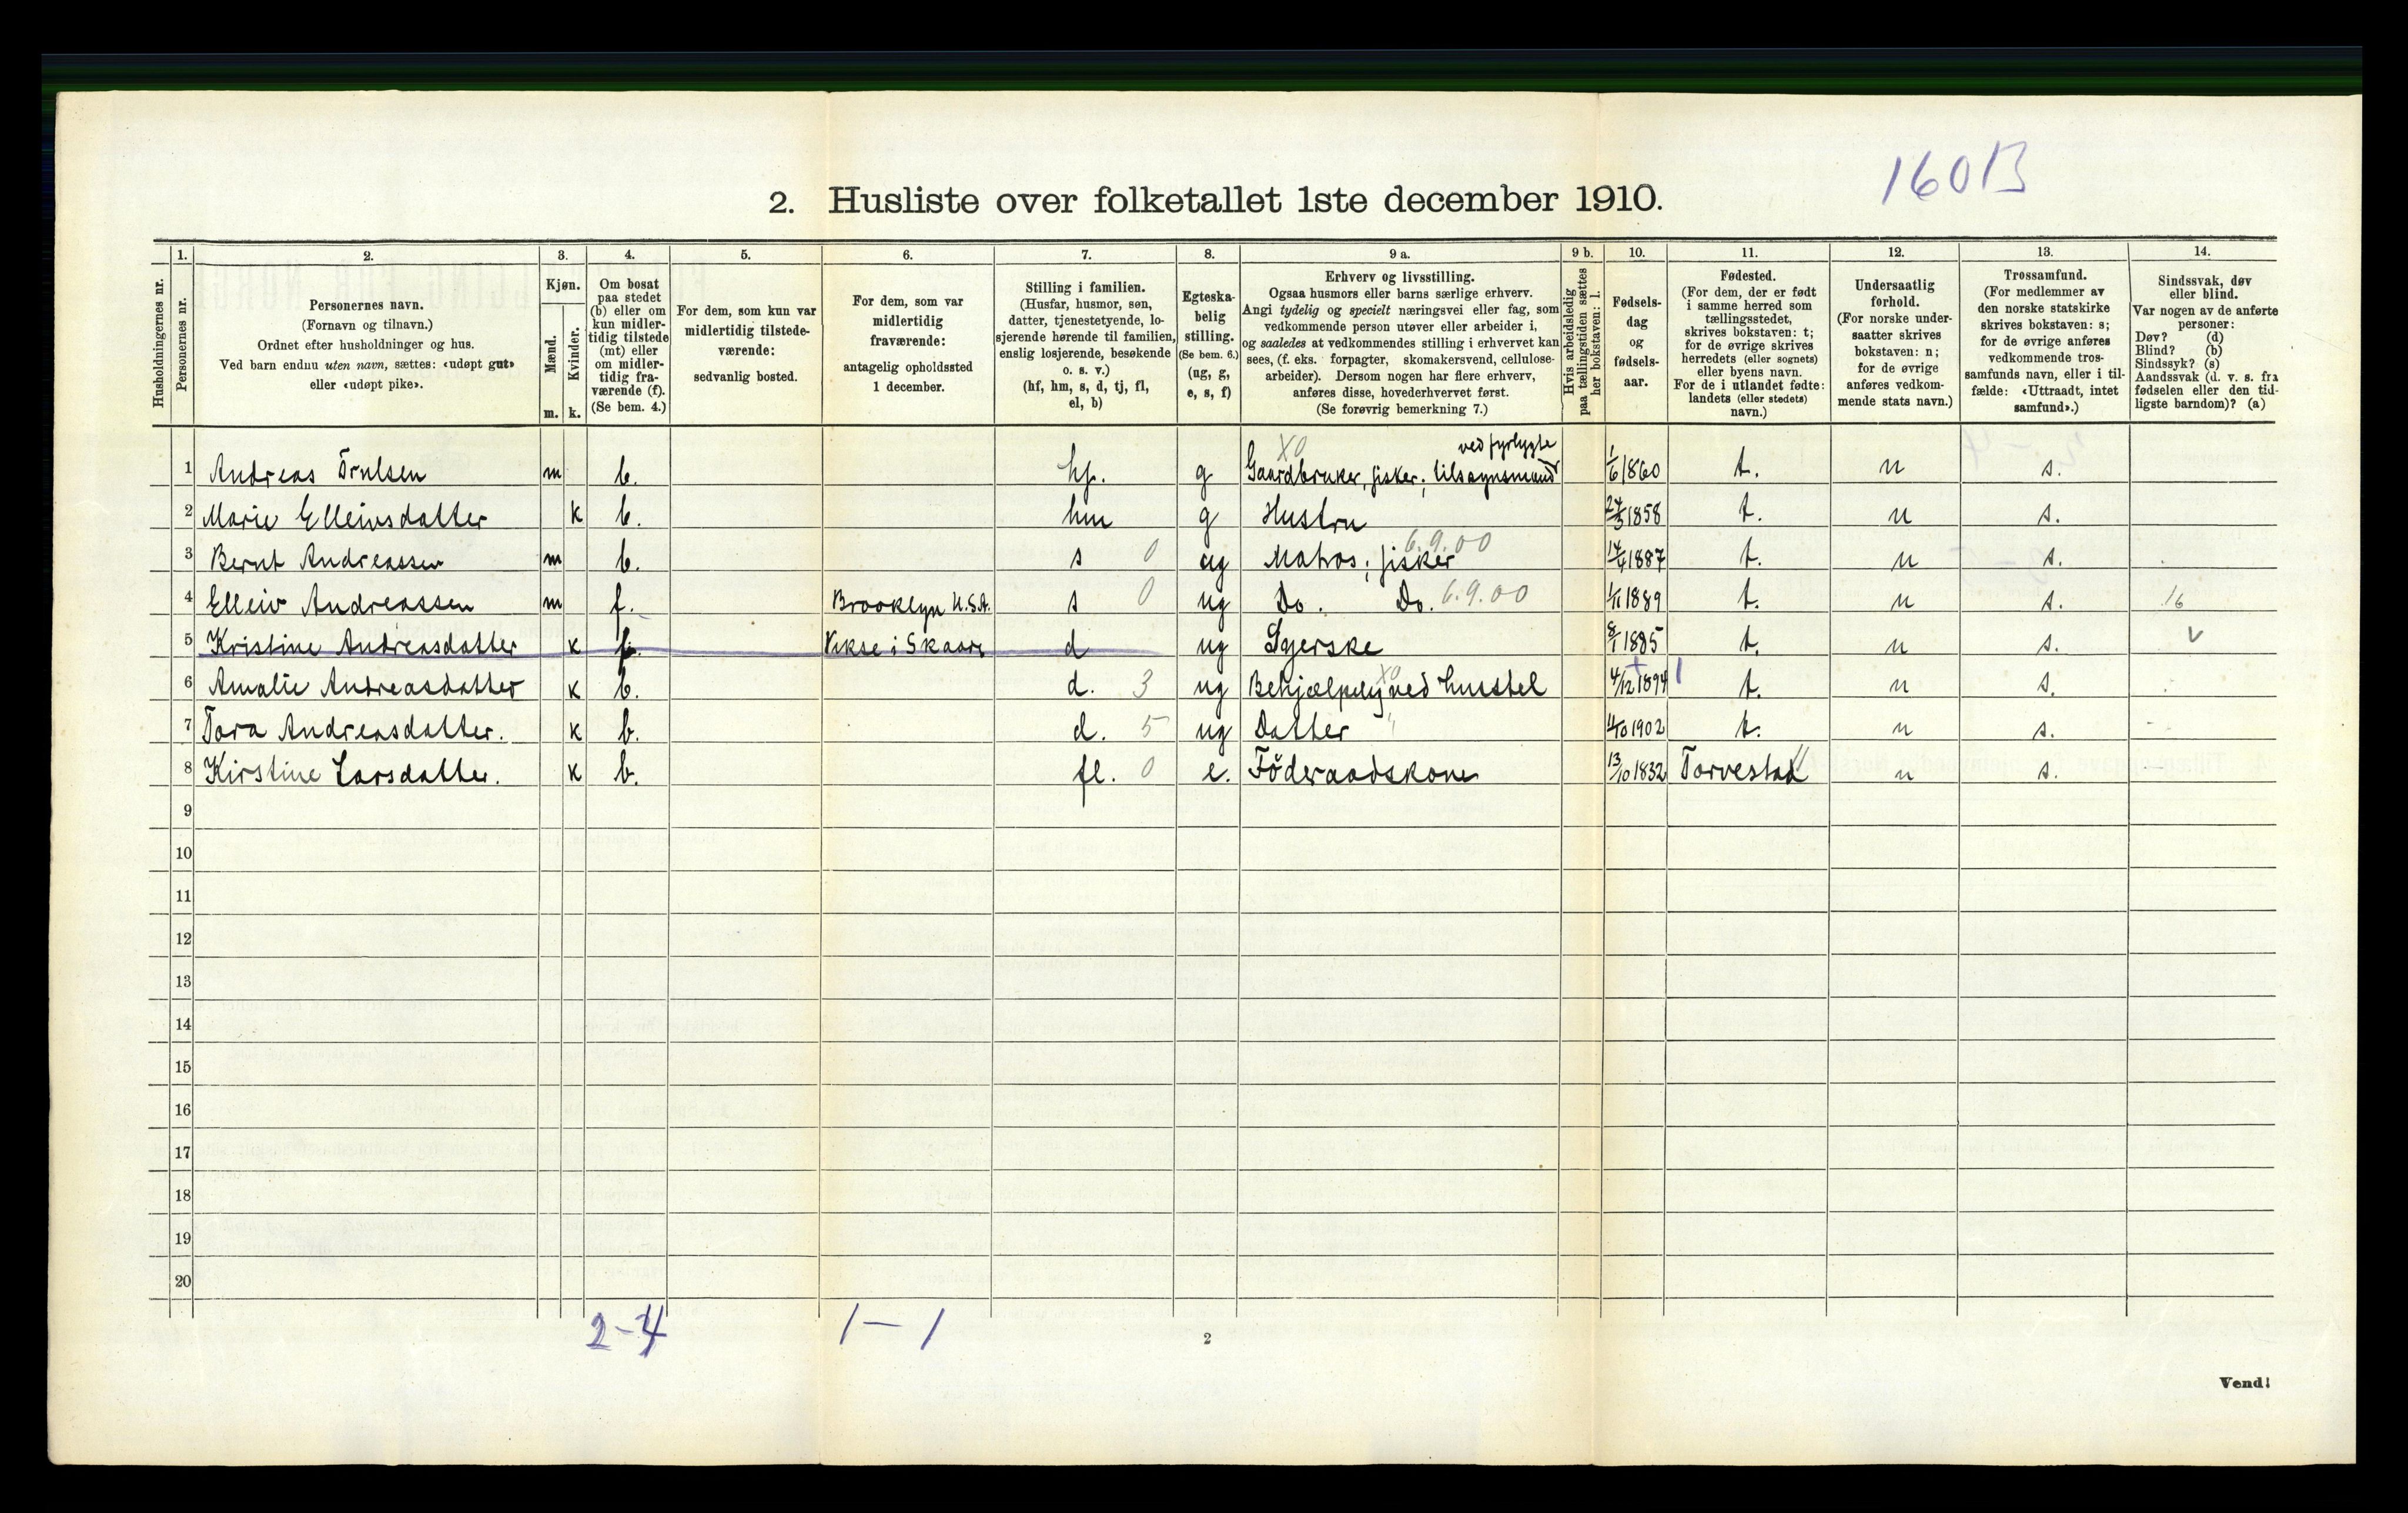 160B
2. Husliste over folketallet 1ste december 1910.
Husholdningernes nr.
1.
Personernes nr.
2.
Personernes navn.
(Fornavn og tilnavn.)
Ordnet efter husholdninger og hus.
Ved barn endnu uten navn, sættes: «udøpt gut»
eller «udøpt pike».
3.
Kjøn.
Mænd.
Kvinder.
m. k.
4.
Om bosat
paa stedet
(b) eller om
kun midler-
tidig tilstede
(mt) eller
om midler-
tidig fra-
værende (f).
(Se bem. 4.)
5.
For dem, som kun var
midlertidig tilstede-
værende:
sedvanlig bosted.
6.
For dem, som var
midlertidig
fraværende:
antagelig opholdssted
1 december.
7.
Stilling i familien.
(Husfar, husmor, søn,
datter, tjenestetyende, lo-
sjerende hørende til familien,
enslig losjerende, besøkende
o. s. v.)
(hf, hm, s, d, tj, fl,
el, b)
8.
Egteska-
belig
stilling.
(Se bem. 6.)
(ug, g,
e, s, f)
9 a.
Erhverv og livsstilling.
Ogsaa husmors eller barns særlige erhverv.
Angi tydelig og specielt næringsvei eller fag, som
vedkommende person utøver eller arbeider i,
og saaledes at vedkommendes stilling i erhvervet kan
sees, (f. eks. forpagter, skomakersvend, cellulose-
arbeider). Dersom nogen har flere erhverv,
anføres disse, hovederhvervet først.
(Se forøvrig bemerkning 7.)
9 b.
Hvis arbeidsledig
paa tællingstiden sættes
her bokstaven: l.
10.
Fødsels-
dag
og
fødsels-
aar.
11.
Fødested.
(For dem, der er født
i samme herred som
tællingsstedet,
skrives bokstaven: t;
for de øvrige skrives
herredets (eller sognets)
eller byens navn.
For de i utlandet fødte:
landets (eller stedets)
navn.)
12.
Undersaatlig
forhold.
(For norske under-
saatter skrives
bokstaven: n;
for de øvrige
anføres vedkom-
mende stats navn.)
13.
Trossamfund.
(For medlemmer av
den norske statskirke
skrives bokstaven: s;
for de øvrige anføres
vedkommende tros-
samfunds navn, eller i til-
fælde: «Uttraadt, intet
samfund».)
14.
Sindssvak, døv
eller blind.
Var nogen av de anførte
personer:
Døv? (d)
Blind? (b)
Sindssyk? (s)
Aandssvak (d. v. s. fra
fødselen eller den tid-
ligste barndom)? (a)
X0 ved fyrlygte
1 Andreas Trulsen m b. hf. g Gaardbruker, fisker; tilsynsmand 1/6 1860 t. n s.
2 Marie Elleivsdatter k b. hm g Hustru 1858 t. n s.
3 Bernt Andreassen m b. s 0 ug Matros; fisker 6.9.00 1887 t. n s.
4 Elleiv Andreassen m f. Brooklyn U.S.A. s 0 ug Do. Do. 6.9.00 1889 t. n s. 16
5 Kristine Andreasdatter k f. Vikse i Skaare d ug Syerske 8/1 1885 t. n s. v
6 Amalie Andreasdatter k b. d. 3 ug Behjælpelig ved husstel X0 4/12 1894 t. n s.
7 Tora Andreasdatter. k b. d. 5 ug Datter " 1902 t. n s.
8 Kirstine Larsdatter. k b. fl. 0 e. Föderaadskone 13/10 1832 Torvestad n s.
9
10
11
12
13
14
15
16
17
18
19
20
2-4 1-1
2
Vend!